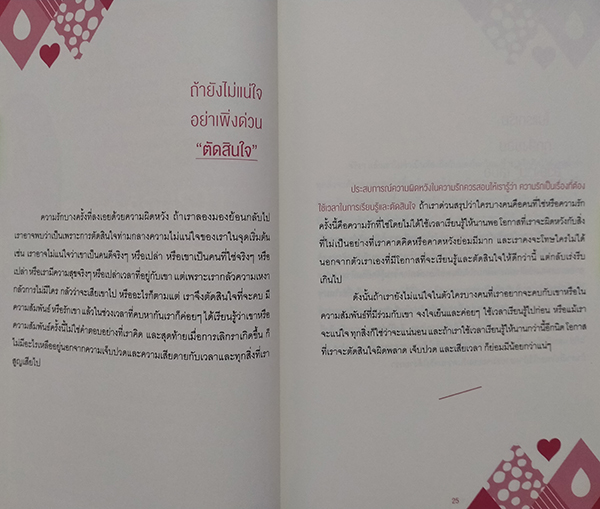 ถ้ายังไม่แน่ใจ
อย่าเพิ่งด่วน
“ตัดสินใจ”
ความรักบางครั้งที่ลงเอยด้วยความผิดหวัง ถ้าเราลองมองย้อนกลับไป
เราอาจพบว่าเป็นเพราะการตัดสินใจท่ามกลางความไม่แน่ใจของเราในจุดเริ่มต้น
เช่น เราอาจไม่แน่ใจว่าเขาเป็นคนดีจริงๆ หรือเปล่า หรือเขาเป็นคนที่ใช่จริงๆ หรือ
เปล่า หรือเรามีความสุขจริงๆ หรือเปล่าเวลาที่อยู่กับเขา แต่เพราะเรากลัวความเหงา
กลัวการไม่มีใคร กลัวว่าจะเสียเขาไป หรืออะไรก็ตามแต่ เราจึงตัดสินใจที่จะคบ มี
ความสัมพันธ์ หรือรักเขา แล้วในช่วงเวลาที่คบหากันเราก็ค่อยๆ ได้เรียนรู้ว่าเขาหรือ
ความสัมพันธ์ครั้งนี้ไม่ใช่คำตอบอย่างที่เราคิด และสุดท้ายเมื่อการเลิกราเกิดขึ้น ก็
ไม่มีอะไรเหลืออยู่นอกจากความเจ็บปวดและความเสียดายกับเวลาและทุกสิ่งที่เรา
สูญเสียไป
ประสบการณ์ความผิดหวังในความรักควรสอนให้เรารู้ว่า ความรักเป็นเรื่องที่ต้อง
ใช้เวลาในการเรียนรู้และตัดสินใจ ถ้าเราด่วนสรุปว่าใครบางคนคือคนที่ใช่หรือความรัก
ครั้งนี้คือความรักที่ใช่โดยไม่ได้ใช้เวลาเรียนรู้ให้นานพอ โอกาสที่เราจะผิดหวังกับสิ่ง
ที่ไม่เป็นอย่างที่เราคาดคิดหรือคาดหวังย่อมมีมาก และเราคงจะโทษใครไม่ได้
นอกจากตัวเราเองที่มีโอกาสที่จะเรียนรู้และตัดสินใจให้ดีกว่านี้ แต่กลับเร่งรีบ
เกินไป
ดังนั้นถ้าเรายังไม่แน่ใจในตัวใครบางคนที่เราอยากจะคบกับเขาหรือใน
ความสัมพันธ์ที่มีร่วมกับเขา จงใจเย็นและค่อยๆ ใช้เวลาเรียนรู้ไปก่อน หรือแม้เรา
จะแน่ใจ ทุกสิ่งก็ใช่ว่าจะแน่นอน และถ้าเราใช้เวลาเรียนรู้ให้นานกว่านี้อีกนิด โอกาส
ที่เราจะตัดสินใจผิดพลาด เจ็บปวด และเสียเวลา ก็ย่อมมีน้อยกว่าแน่ๆ
25